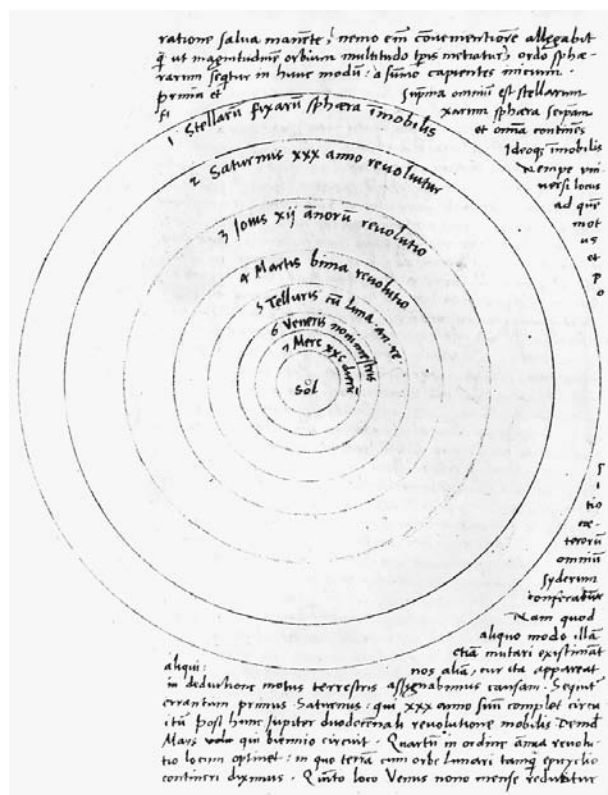 ratione salua manente, nemo em̃ conuenientiorē allegabit
q̃ ut magnitudinē orbium multitudo tp̃is metiatur, ordo sphæ-
rarum seq̃tur in hunc modũ: a sũmo capientes inicium.
prima et sup̃ma omniũ est stellarum
fi xarum sphæra seip̃am
et om̃ia continẽs
Ideoq; ĩmobilis
Nempe uni
uersi locus
ad quẽ
mot
us
et
p
o
1 Stellarũ fixarũ sphæra ĩmobilis
2 Saturnus xxx anno reuoluitur
3 Jouis xij ãnorũ reuolutio
4 Martis bima reuolutio
5 Telluris cũ luna an. re.
6 Veneris nonimestris
7 Merc xxc dierũ
Sol
s
i
tio
cæ
terorũ
omniũ
syderum
conferatur
Nam quod
aliquo modo illã
etiã mutari existimãt
aliqui: nos aliã, cur ita appareat
in deductione motus terrestris assignabimus causam. Sequit̃
errantium primus Saturnus: qui xxx anno suũ complet circu
itũ post hunc Jupiter duodecẽnali reuolutione mobilis Deinde
Mars qui biennio circuit. Quartũ in ordine ãnua reuolu
tio locum optinet: in quo terrã cum orbe lunari tanq̃ epicyclo
contineri diximus. Quinto loco Venus nono mense reducitur